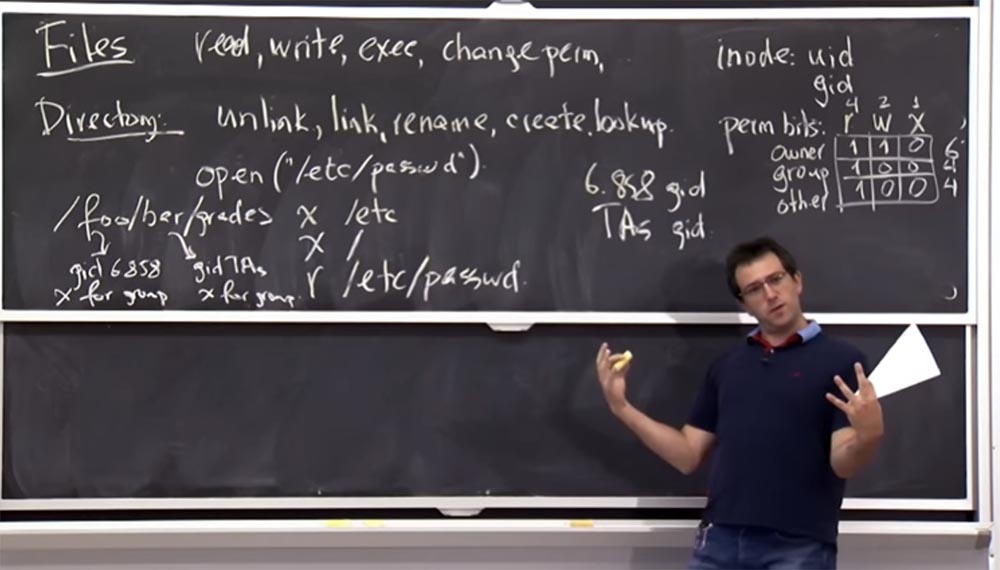 Files read, write, exec, change perm,
Directory: unlink, link, rename, create, lookup.
open("/etc/passwd").
/foo/bar/grades x /etc
x /
r /etc/passwd.
gid 6858
x for group
gid TAs
x for group.
6.858 gid
TAs gid.
inode: uid
gid
4 2 1
perm bits: r w x
owner 1 1 0 6
group 1 0 0 4
other 1 0 0 4